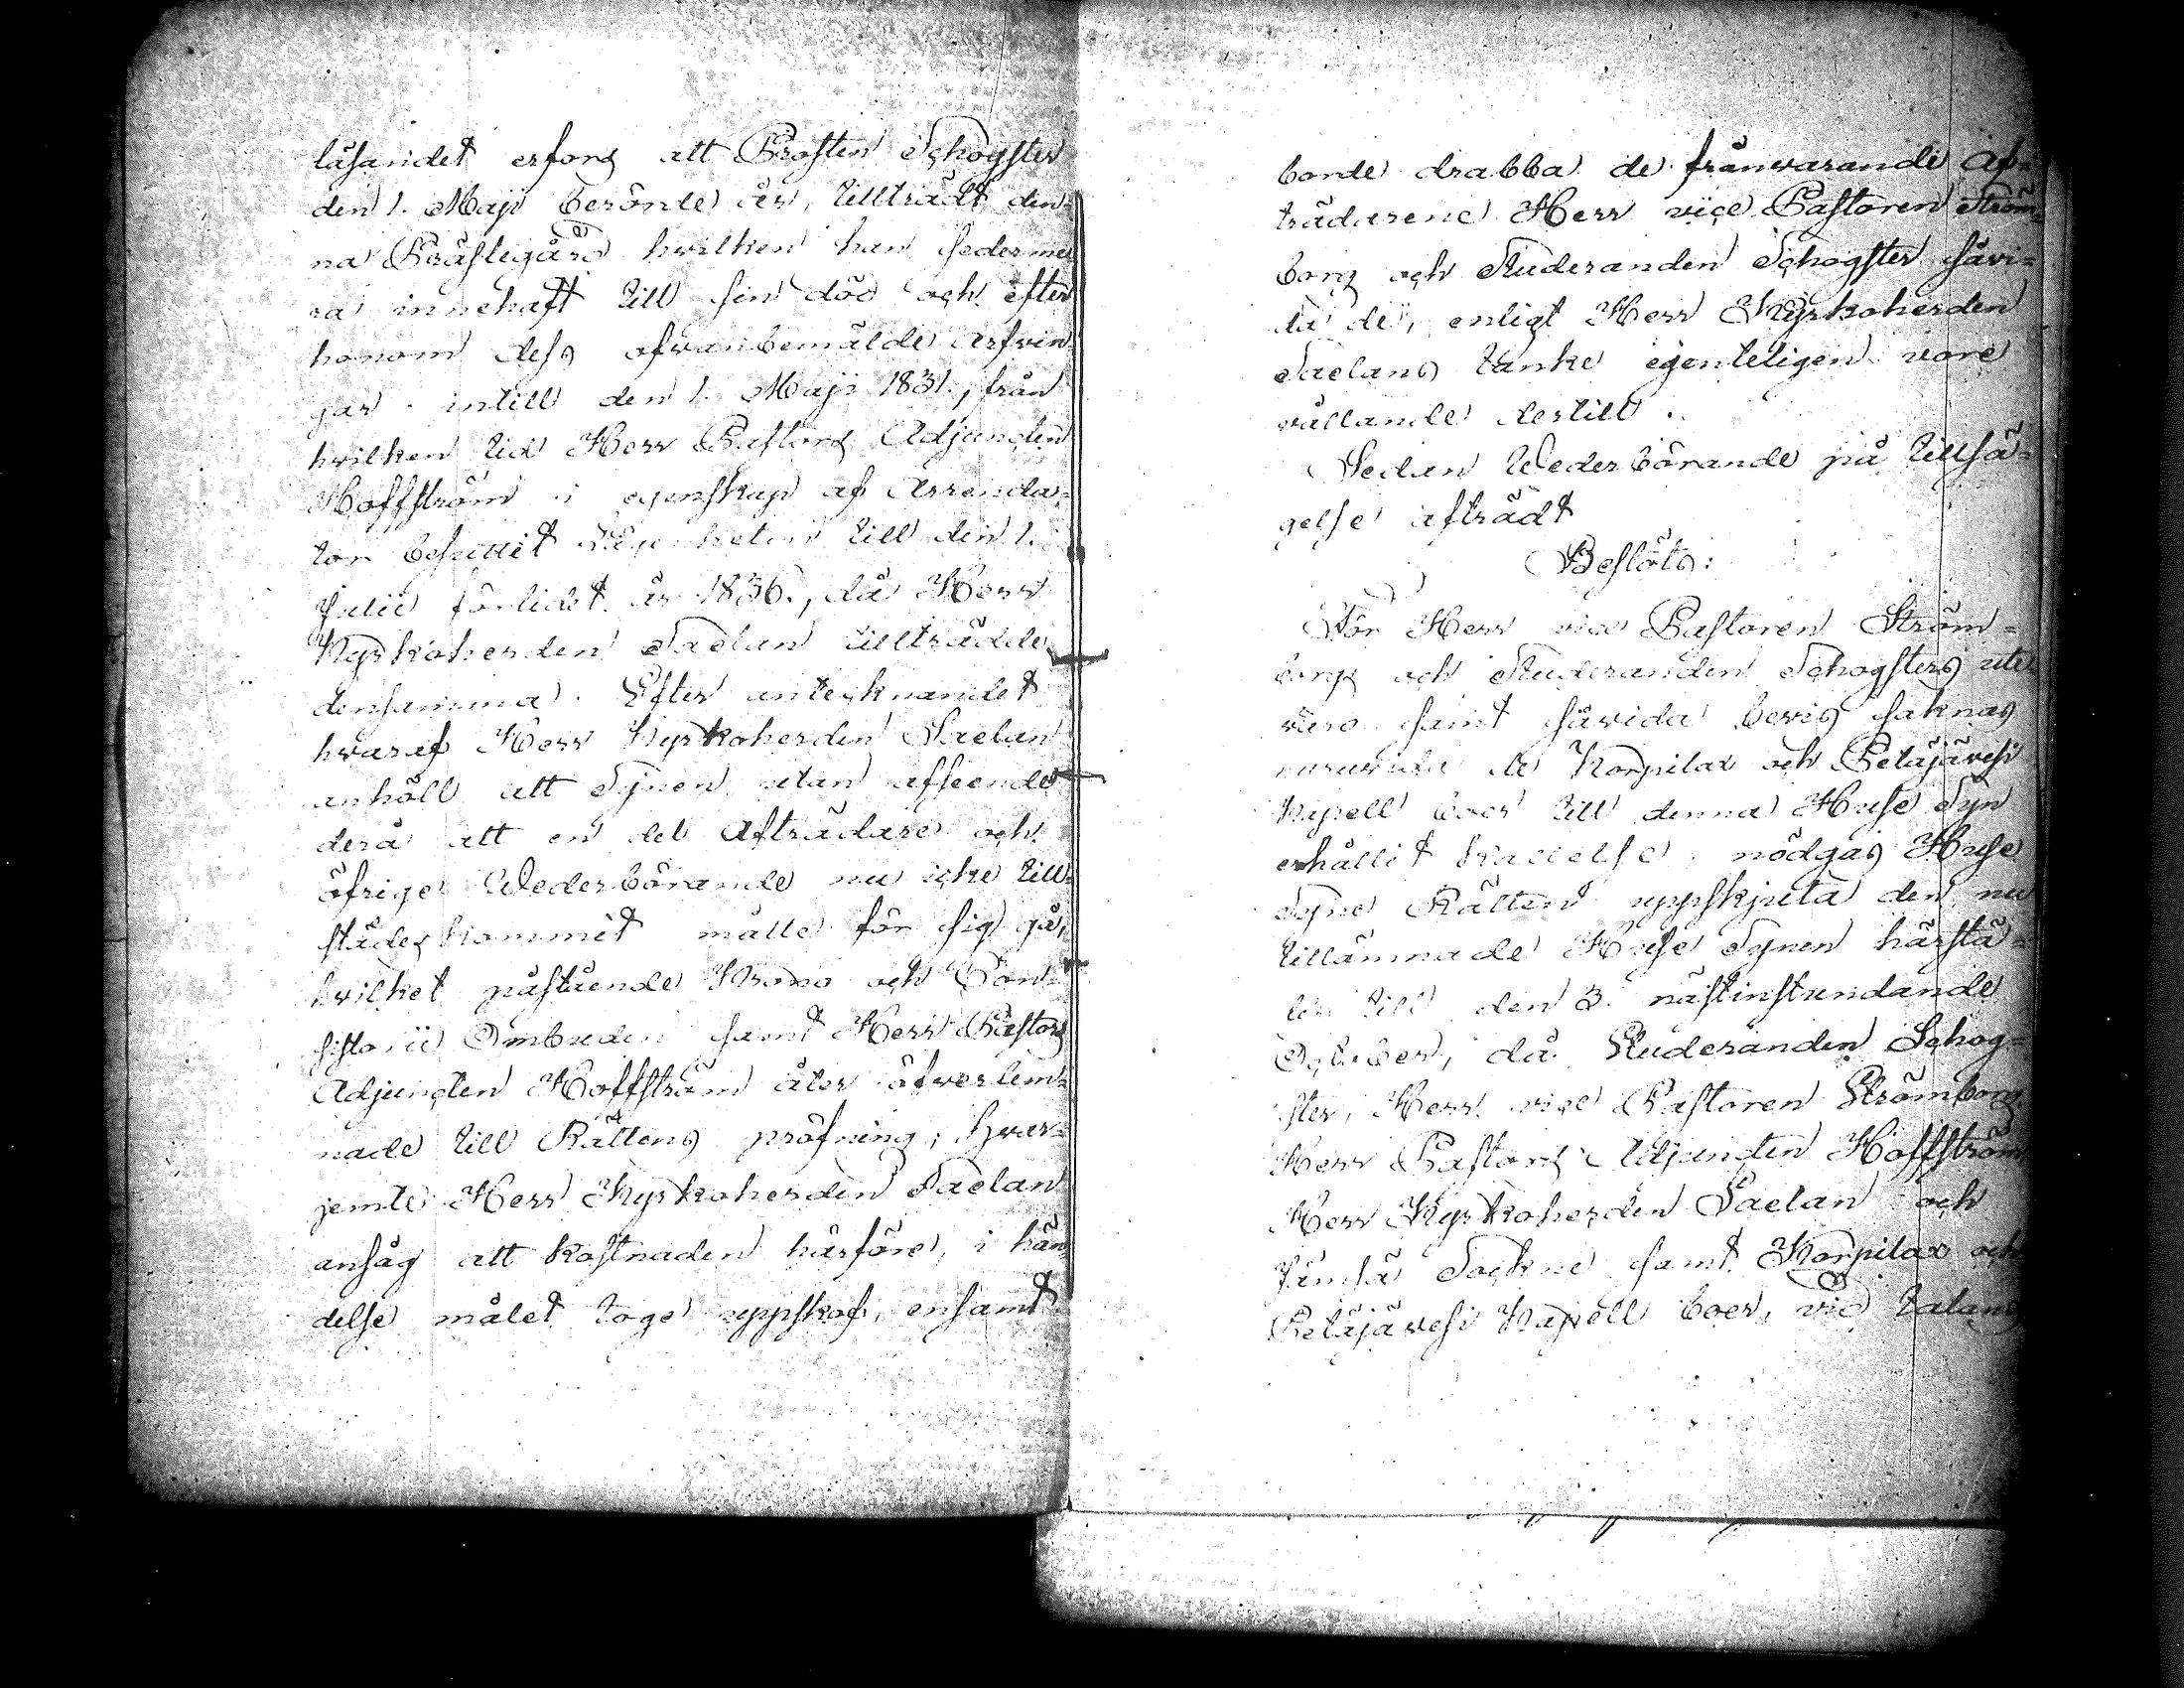 läsandet erfors att Prosten Schogster
den 1. Maji berörde år, tillträdt den=
na Prästegård hvilken han sederme
ra innehaft till sin död och efter
honom dess ofvanbemälde Arfvin
gar intill den 1. Maji 1831., från
hvilken tid Herr Pastors Adjuncten
Hoffström i egenskap af Arrenda=
tor besuttit Lägenheten till den 1.
Julii förlidet år 1836., då Herr
Kyrkoherden Saelan tillträdde
densamma. Efter antecknandet
hvaraf Herr Kyrkoherden Saelan
anhöll att Synen utan afseende
derå att en del Afträdare och
öfrige Wederbörande nu icke till=
städes kommit måtte för sig gå,
hvilket påstående Krono och Con=
sistorii Ombuden samt Herr Pastors
Adjuncten Hoffström äfven öfverlem=
nade till Rättens pröfning; hvar=
jemte Herr Kyrkoherden Saelan
ansåg att kostnaden härföre, i hän
delse målet toge uppskof, ensamt
borde drabba de frånvarande Af=
trädarene Herr vice Pastoren Ström=
borg och Studeranden Schogster såvi=
da de, enligt Herr Kyrkoherden
Saelans tanke egenteligen vore
vållande dertill.
Sedan Wederbörande på tillsä=
gelse afträdt
Beslöts:
För Herr vice Pastoren Ström=
borgs och Studeranden Schogsters ute
varo samt såvida bevis saknas
huruvida de Korpilax och Petäjävesi
Kapell boer till denna Huse Syn
erhållit kallelse, nödgas Huse
Syne Rätten uppskjuta den nu
tillämnade Huse Synen härstä=
des till den 3. nästinstundande
October, då Studeranden Schog=
ster, Herr vice Pastoren Strömborg
Herr Pastors Adjuncten Hoffström
Herr Kyrkoherden Saelan och
Jämsä Sockne samt Korpilax och
Petäjävesi Kapell boer, vid talans